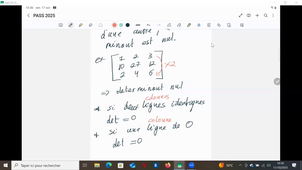 PASS 2025
d'une autre,
minout est nul.
ex
1 2 3
10 27 12
2 4 6
×2
⇒ determinant nul
colonnes
si deux lignes identiques
det = 0
colonne
si une ligne de 0
det = 0
Taper ici pour rechercher